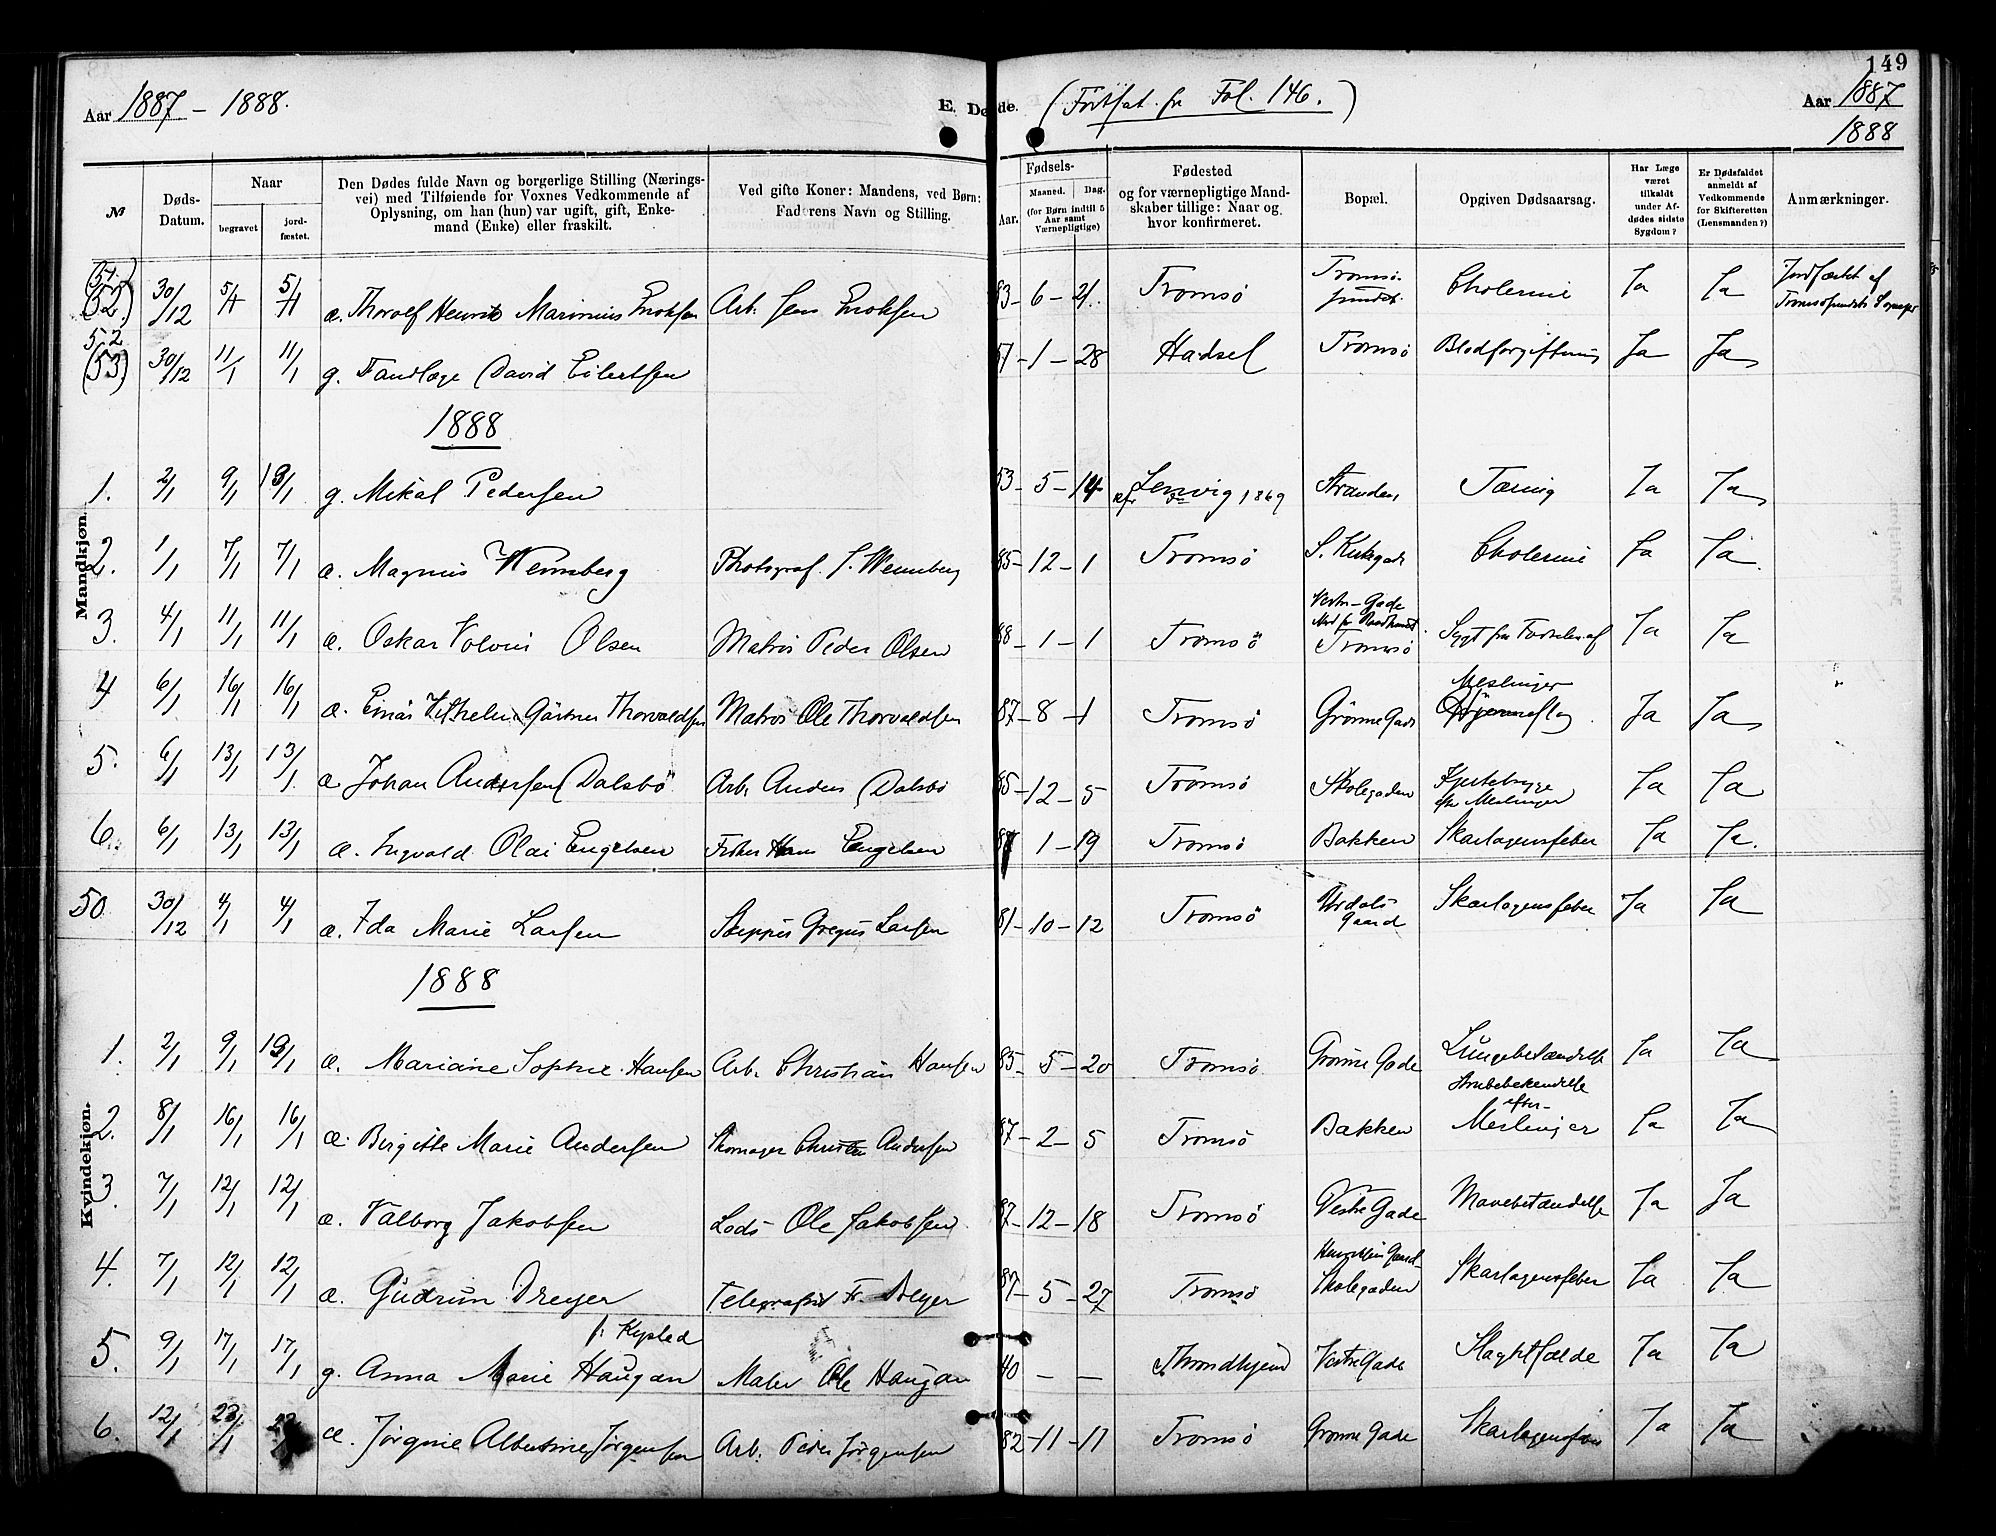 149
Aar 1887 – 1888.
E. Døde.
(Fortsat. fr Fol. 146.)
Aar 1887
1888
№
Døds-Datum.
Naar
begravet
jordfæstet.
Den Dødes fulde Navn og borgerlige Stilling (Nærings-
vei) med Tilføiende for Voxnes Vedkommende af
Oplysning, om han (hun) var ugift, gift, Enke-
mand (Enke) eller fraskilt.
Ved gifte Koner: Mandens, ved Børn:
Faderens Navn og Stilling.
Fødsels-
Aar.
Maaned.
Dag.
(for Børn indtil 5
Aar samt
Værnepligtige)
Fødested
og for værnepligtige Mand-
skaber tillige: Naar og
hvor konfirmeret.
Bopæl.
Opgiven Dødsaarsag.
Har Læge
været
tilkaldt
under Af-
dødes sidste
Sygdom?
Er Dødsfaldet
anmeldt af
Vedkommende
for Skifteretten
(Lensmanden?)
Anmærkninger.
Mandkjøn.
(52) 30/12 5/1 5/1 æ. Thorolf Henrik Marinius Enoksen Arb. Jens Enoksen 83 – 6 – 21. Tromsö Tromsö- sundet. Cholerine Ja Ja Jordfæstet af Tromsøsundets Sognepr
52 (53) 30/12 11/1 11/1 g. Tandlæge David Eilertsen 51 – 1 – 28 Hadsel Tromsö Blodforgiftning Ja Ja
1888
1. 2/1 9/1 g. Mikal Pedersen 53 – 5 – 14 Lenvig 1869 Stranden Tæring Ja Ja
2. 1/1 7/1 7/1 æ. Magnus Wennberg Photograf. Wennberg 85 – 12 – 1 Tromsö S. Kirkegade Cholerine Ja Ja.
3. 4/1 11/1 11/1 æ. Oskar Olsen Matros Peder Olsen 88 – 1 – 1 Tromsö Vestre – Gade Tromsö Sygt fra Fødselen af Ja Ja
4 6/1 16/1 16/1 æ. Einar Vilhelm Gärtner Thorvaldsen Matros Ole Thorvaldsen 87 – 8 – 1 Tromsö Grönne Gade Meslinger Ja Ja
5. 6/1 13/1 13/1. æ Johan Andersen Dalsbö Arb. Anders Dalsbö 85 – 12 – 5 Tromsö Skolegaden Kjertelsyge efter Meslinger Ja Ja
6. 6/1 13/1 13/1 æ. Ingvald Olai Engelsen Fisker Hans Engelsen 1 – 19 Tromsö Bakken Skarlagensfeber Ja Ja.
50 30/12 4/1 4/1 æ. Ida Marie Larsen Skipper Gregus Larsen 81 – 10 – 12 Tromsö Gaard Skarlagensfeber Ja Ja
1888
Kvindekjøn.
1. 2/1 9/1 æ. Mariane Sophie Hansen Arb. Christian Hansen 85 – 5 – 20 Tromsö. Grönne Gade Lungebetændelse Ja Ja
2. 8/1 16/1 16/1 æ. Birgitte Marie Andersen Skomager Andersen 87 – 2 – 5 Tromsö Bakken Strubebetændelse efter- Meslinger Ja Ja
3. 7/1 12/1 12/1 æ. Valborg Jakobsen Lods Ole Jakobsen 87 – 12 – 18 Tromsö Vestre Gade Mavebetændelse Ja Ja
4. 7/1 12/1 12/1 æ. Gudrun Dreyer Telegrafist Fr. Dreyer 87 – 5 – 27 Tromsö Gaard Skolegaden Skarlagensfeber Ja Ja
5. 9/1 17/1 17/1 g. Anna Marie Haugan Maler Ole Haugan 40 – – Throndhjem Vestre Gade Slagtilfælde Ja Ja
6. 12/1 23/1 æ. Jörgine Albertine Jörgensen Arb. Peder Jörgensen 82 – 11 – 11 Tromsö Grönne Gade Ja Ja